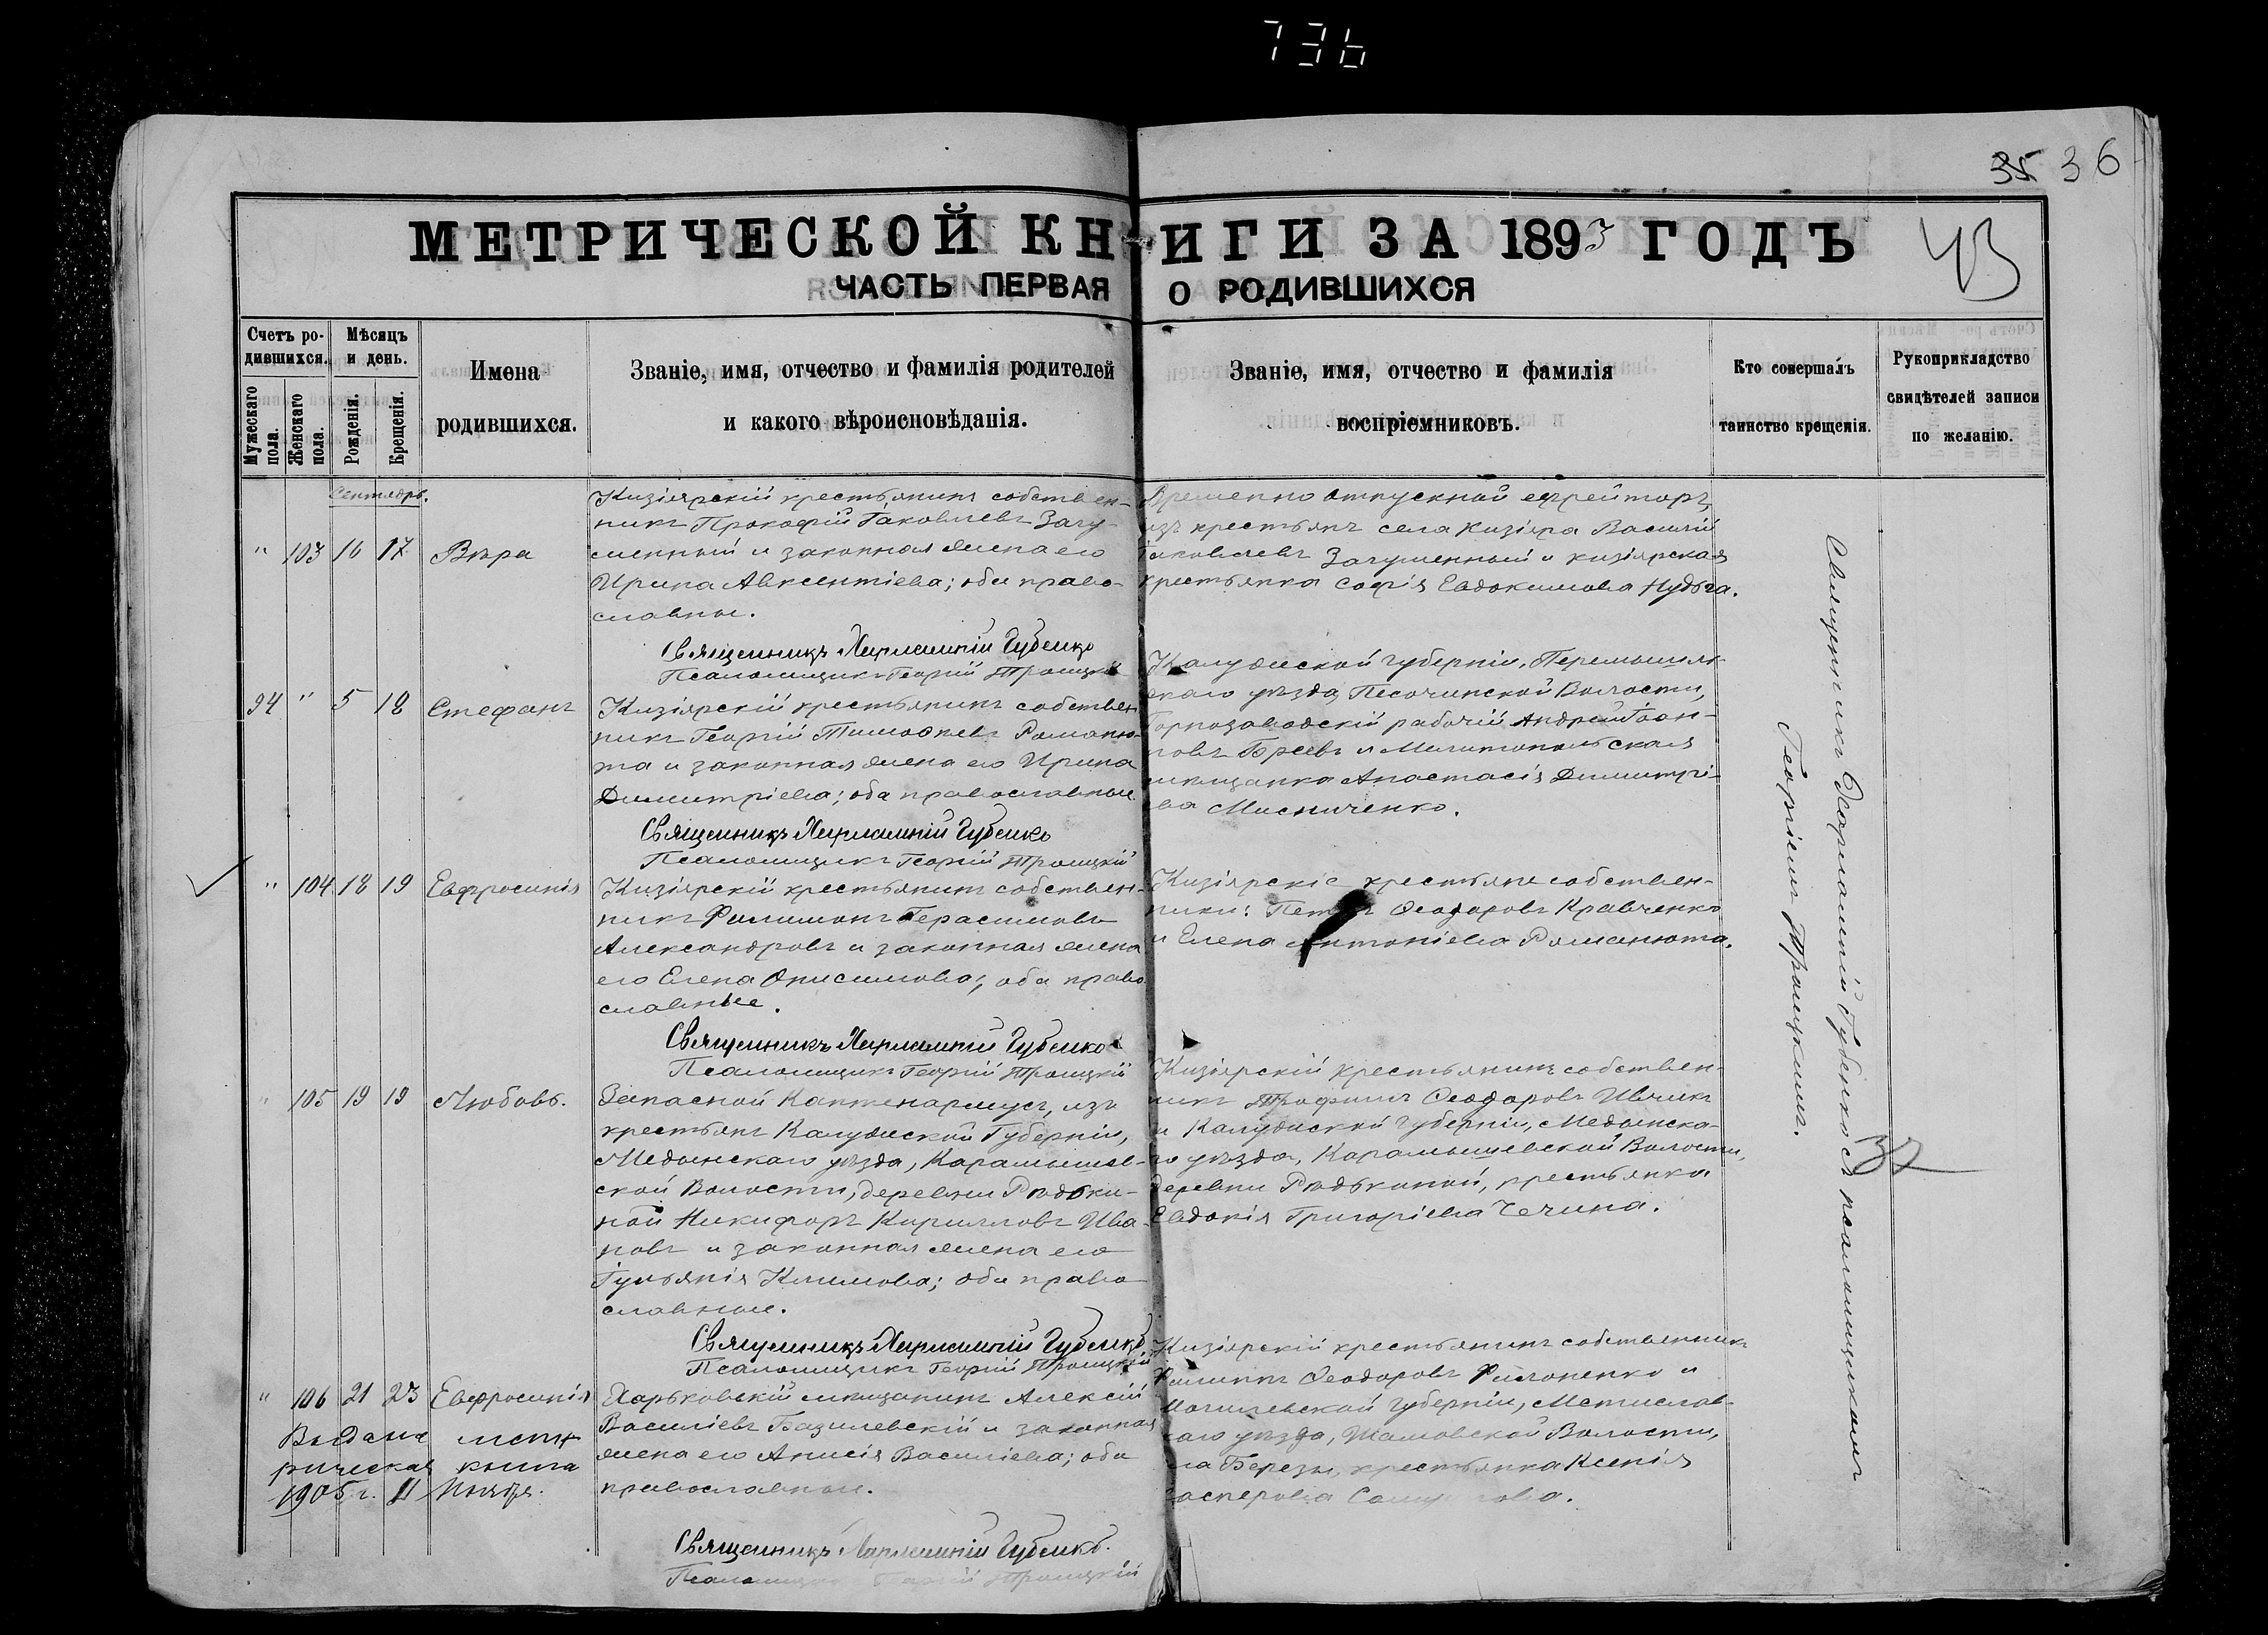 736
35 36
МЕТРИЧЕСКОЙ КНИГИ ЗА 1893 ГОДЪ
43
ЧАСТЬ ПЕРВАЯ О РОДИВШИХСЯ
Счетъ родившихся.
Мужескаго пола.
Женскаго пола.
Мѣсяцъ и день.
Рожденія.
Крещенія.
Имена
родившихся.
Званіе, имя, отчество и фамилія родителей
и какого вѣроисповѣданія.
Званіе, имя, отчество и фамилія
воспріемниковъ.
Кто совершалъ
таинство крещенія.
Рукоприкладство
свидѣтелей записи
по желанію.
Сентябрь.
" 103 16 17 Вѣра
Кизіярскій крестьянинъ собствен-
никъ Прокофій Іаковлевъ Загу-
менный и законная жена его
Ирина Авксентіева; оба право-
славные.
Священникъ Харлампій Губенко
Псаломщикъ Георгій Троицкій
Временно отпускной ефрейторъ,
изъ крестьянъ села Кизіяра Василій
Іаковлевъ Загуменный и кизіярская
крестьянка Софія Евдокимова Нудьга.
94 " 5 18 Стефанъ
Кизіярскій крестьянинъ собствен
никъ Георгій Тимоѳеевъ Романю-
та и законная жена его Ирина
Димитріева; оба православные.
Священникъ Харлампій Губенко
Псаломщикъ Георгій Троицкій
Калужской губерніи, Перемышль
скаго уѣзда, Песочинской Волости,
Горнозаводскій рабочій Андрей Іоан-
новъ Бреевъ и Мелитопольская
мѣщанка Анастасія Димитрі-
ева Мисниченко.
" 104 18 19 Евфросинія
Кизіярскій крестьянинъ собствен-
никъ Филимонъ Герасимовъ
Александровъ и законная жена
его Елена Онисимова; оба право
славные.
Священникъ Харлампій Губенко
Псаломщикъ Георгій Троицкій
Кизіярскіе крестьяне собствен-
ники: Петръ Ѳеодоровъ Кравченко
и Елена Антоніева Романюта.
" 105 19 19 Любовь.
Запасной Каптенармусъ, изъ
крестьянъ Калужской Губерніи,
Медынскаго уѣзда, Карамышев-
ской Волости, деревни Рѣдьки-
ной Никифоръ Кирилловъ Ива-
новъ и законная жена его
Іульянія Климова; оба право
славные.
Священникъ Харлампій Губенко
Псаломщикъ Георгій Троицкій
Кизіярскій крестьянинъ собствен-
никъ Трофимъ Ѳеодоровъ Ивчикъ
и Калужской губерніи, Медынска-
го уѣзда, Карамышевской Волости,
деревни Рѣдькиной, крестьянка
Евдокія Григоріева Чечина.
" 106 21 23 Евфросинія
Харьковскій мѣщанинъ Алексій
Василіевъ Базилевскій и законная
жена его Анисія Василіева; оба
православные.
Священникъ Харлампій Губенко.
Псаломщикъ Георгій Троицкій
Кизіярскій крестьянинъ собственникъ
Филиппъ Ѳеодоровъ Филоненко и
Могилевской Губерніи, Мстислав-
каго уѣзда, Шамовской Волости,
Березы, крестьянка Ксенія
Выдана мет
рическая книга
1905 г. 11 Ноября.
Священникъ Харлампій Губенко съ псаломщикомъ
Георгіемъ Троицкимъ.
37